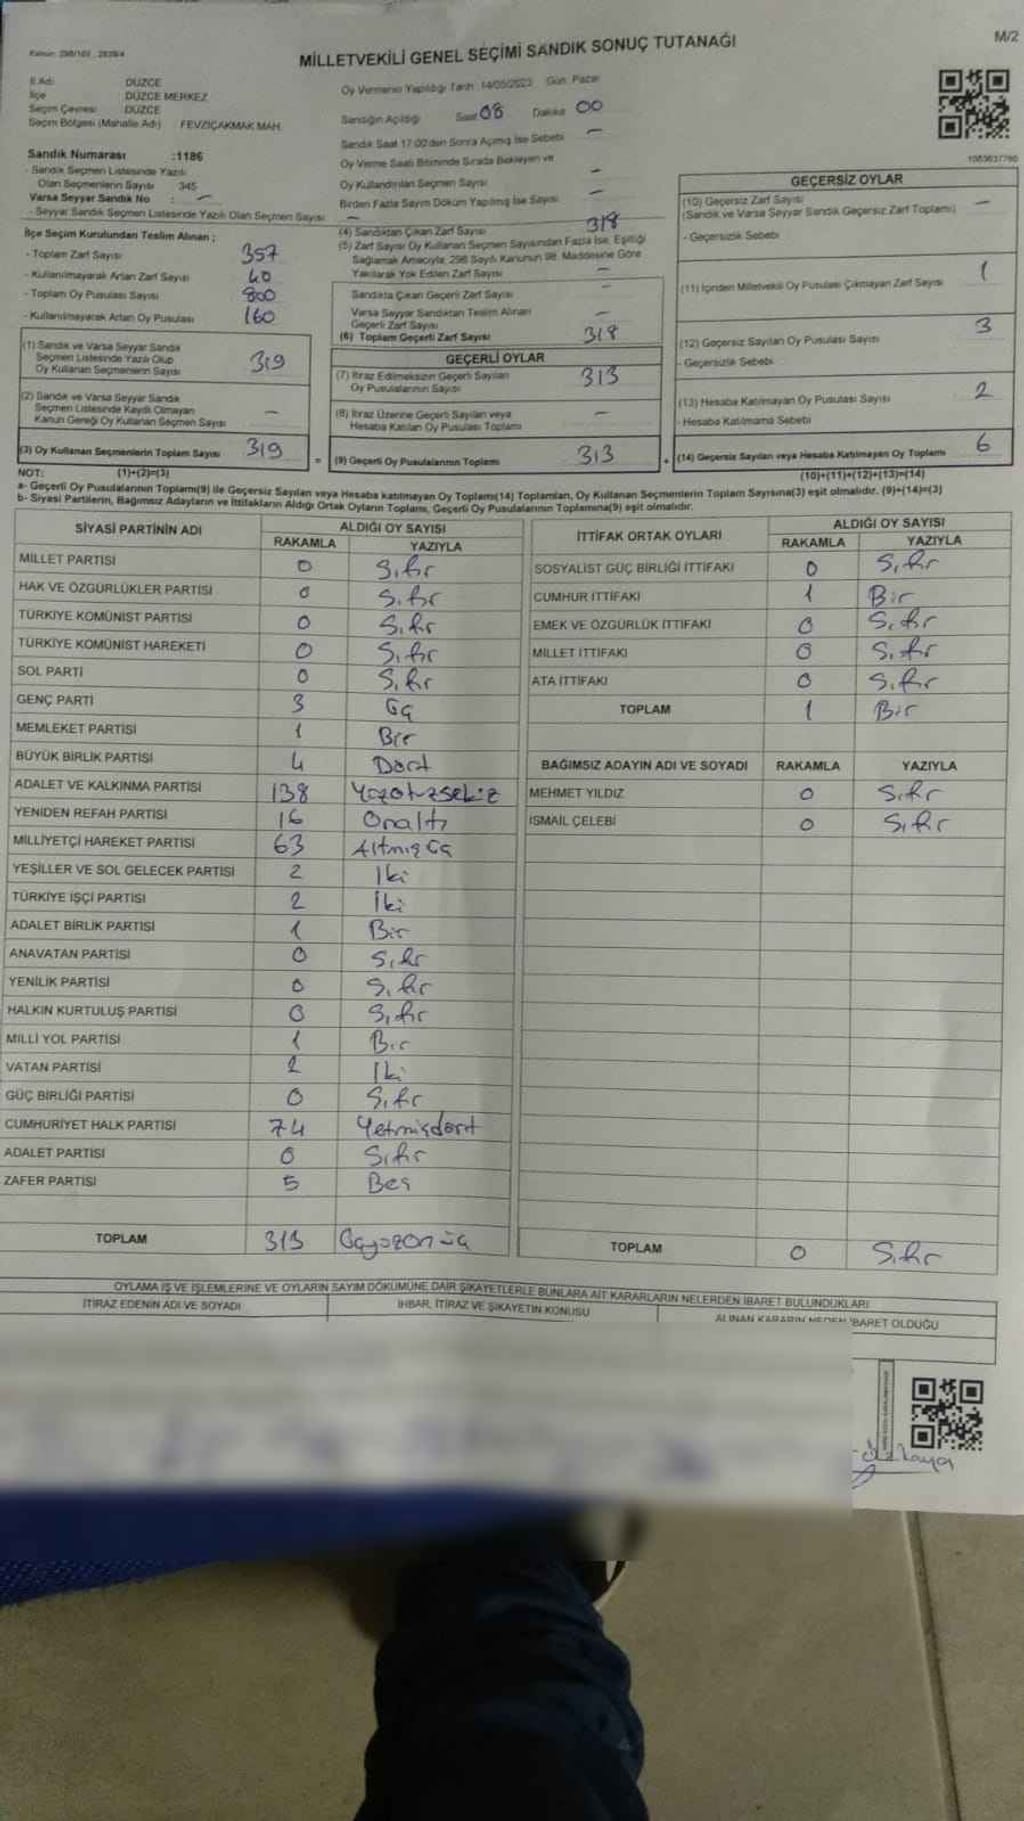 Kanun: 298/105 , 2839/4
M/2
MİLLETVEKİLİ GENEL SEÇİMİ SANDIK SONUÇ TUTANAĞI
İl Adı DÜZCE
İlçe DÜZCE MERKEZ
Seçim Çevresi DÜZCE
Seçim Bölgesi (Mahalle Adı) FEVZİÇAKMAK MAH.
Sandık Numarası :1186
- Sandık Seçmen Listesinde Yazılı
Olan Seçmenlerin Sayısı 345
Varsa Seyyar Sandık No : -
- Seyyar Sandık Seçmen Listesinde Yazılı Olan Seçmen Sayısı -
Oy Vermenin Yapıldığı Tarih :14/05/2023 Gün: Pazar
Sandığın Açıldığı Saat 08 Dakika 00
Sandık Saat 17.00'den Sonra Açılmış İse Sebebi -
Oy Verme Saati Bitiminde Sırada Bekleyen ve
Oy Kullandırılan Seçmen Sayısı -
Birden Fazla Sayım Döküm Yapılmış İse Sayısı -
İlçe Seçim Kurulundan Teslim Alınan ;
- Toplam Zarf Sayısı 357
- Kullanılmayarak Artan Zarf Sayısı 40
- Toplam Oy Pusulası Sayısı 800
- Kullanılmayarak Artan Oy Pusulası 160
(1) Sandık ve Varsa Seyyar Sandık
Seçmen Listesinde Yazılı Olup
Oy Kullanan Seçmenlerin Sayısı 319
(2) Sandık ve Varsa Seyyar Sandık
Seçmen Listesinde Kayıtlı Olmayan
Kanun Gereği Oy Kullanan Seçmen Sayısı -
(3) Oy Kullanan Seçmenlerin Toplam Sayısı 319
(4) Sandıktan Çıkan Zarf Sayısı 318
(5) Zarf Sayısı Oy Kullanan Seçmen Sayısından Fazla İse, Eşitliği
Sağlamak Amacıyla, 298 Sayılı Kanunun 98. Maddesine Göre
Yakılarak Yok Edilen Zarf Sayısı -
Sandıkta Çıkan Geçerli Zarf Sayısı -
Varsa Seyyar Sandıktan Teslim Alınan
Geçerli Zarf Sayısı -
(6) Toplam Geçerli Zarf Sayısı 318
GEÇERLİ OYLAR
(7) İtiraz Edilmeksizin Geçerli Sayılan
Oy Pusulalarının Sayısı 313
(8) İtiraz Üzerine Geçerli Sayılan veya
Hesaba Katılan Oy Pusulası Toplamı -
= (9) Geçerli Oy Pusulalarının Toplamı 313
1083637760
GEÇERSİZ OYLAR
(10) Geçersiz Zarf Sayısı
(Sandık ve Varsa Seyyar Sandık Geçersiz Zarf Toplamı) -
- Geçersizlik Sebebi
(11) İçinden Milletvekili Oy Pusulası Çıkmayan Zarf Sayısı 1
(12) Geçersiz Sayılan Oy Pusulası Sayısı 3
- Geçersizlik Sebebi
(13) Hesaba Katılmayan Oy Pusulası Sayısı 2
- Hesaba Katılmama Sebebi
+ (14) Geçersiz Sayılan veya Hesaba Katılmayan Oy Toplamı 6
NOT: (1)+(2)=(3) (10)+(11)+(12)+(13)=(14)
a- Geçerli Oy Pusulalarının Toplamı(9) ile Geçersiz Sayılan veya Hesaba katılmayan Oy Toplam(14) Toplamları, Oy Kullanan Seçmenlerin Toplam Sayısına(3) eşit olmalıdır. (9)+(14)=(3)
b- Siyasi Partilerin, Bağımsız Adayların ve İttifakların Aldığı Ortak Oyların Toplamı, Geçerli Oy Pusulalarının Toplamına(9) eşit olmalıdır.
SİYASİ PARTİNİN ADI ALDIĞI OY SAYISI
RAKAMLA YAZIYLA
MİLLET PARTİSİ 0 Sıfır
HAK VE ÖZGÜRLÜKLER PARTİSİ 0 Sıfır
TÜRKİYE KOMÜNİST PARTİSİ 0 Sıfır
TÜRKİYE KOMÜNİST HAREKETİ 0 Sıfır
SOL PARTİ 0 Sıfır
GENÇ PARTİ 3 Üç
MEMLEKET PARTİSİ 1 Bir
BÜYÜK BİRLİK PARTİSİ 4 Dört
ADALET VE KALKINMA PARTİSİ 138 Yüzotuzsekiz
YENİDEN REFAH PARTİSİ 16 Onaltı
MİLLİYETÇİ HAREKET PARTİSİ 63 Altmışüç
YEŞİLLER VE SOL GELECEK PARTİSİ 2 İki
TÜRKİYE İŞÇİ PARTİSİ 2 İki
ADALET BİRLİK PARTİSİ 1 Bir
ANAVATAN PARTİSİ 0 Sıfır
YENİLİK PARTİSİ 0 Sıfır
HALKIN KURTULUŞ PARTİSİ 0 Sıfır
MİLLİ YOL PARTİSİ 1 Bir
VATAN PARTİSİ 2 İki
GÜÇ BİRLİĞİ PARTİSİ 0 Sıfır
CUMHURİYET HALK PARTİSİ 74 Yetmişdört
ADALET PARTİSİ 0 Sıfır
ZAFER PARTİSİ 5 Beş
TOPLAM 313 Üçyüzonüç
İTTİFAK ORTAK OYLARI ALDIĞI OY SAYISI
RAKAMLA YAZIYLA
SOSYALİST GÜÇ BİRLİĞİ İTTİFAKI 0 Sıfır
CUMHUR İTTİFAKI 1 Bir
EMEK VE ÖZGÜRLÜK İTTİFAKI 0 Sıfır
MİLLET İTTİFAKI 0 Sıfır
ATA İTTİFAKI 0 Sıfır
TOPLAM 1 Bir
BAĞIMSIZ ADAYIN ADI VE SOYADI RAKAMLA YAZIYLA
MEHMET YILDIZ 0 Sıfır
İSMAİL ÇELEBİ 0 Sıfır
TOPLAM 0 Sıfır
OYLAMA İŞ VE İŞLEMLERİNE VE OYLARIN SAYIM DÖKÜMÜNE DAİR ŞİKAYETLERLE BUNLARA AİT KARARLARIN NELERDEN İBARET BULUNDUKLARI
İTİRAZ EDENİN ADI VE SOYADI İHBAR, İTİRAZ VE ŞİKAYETİN KONUSU ALINAN KARARIN NEDEN İBARET OLDUĞU